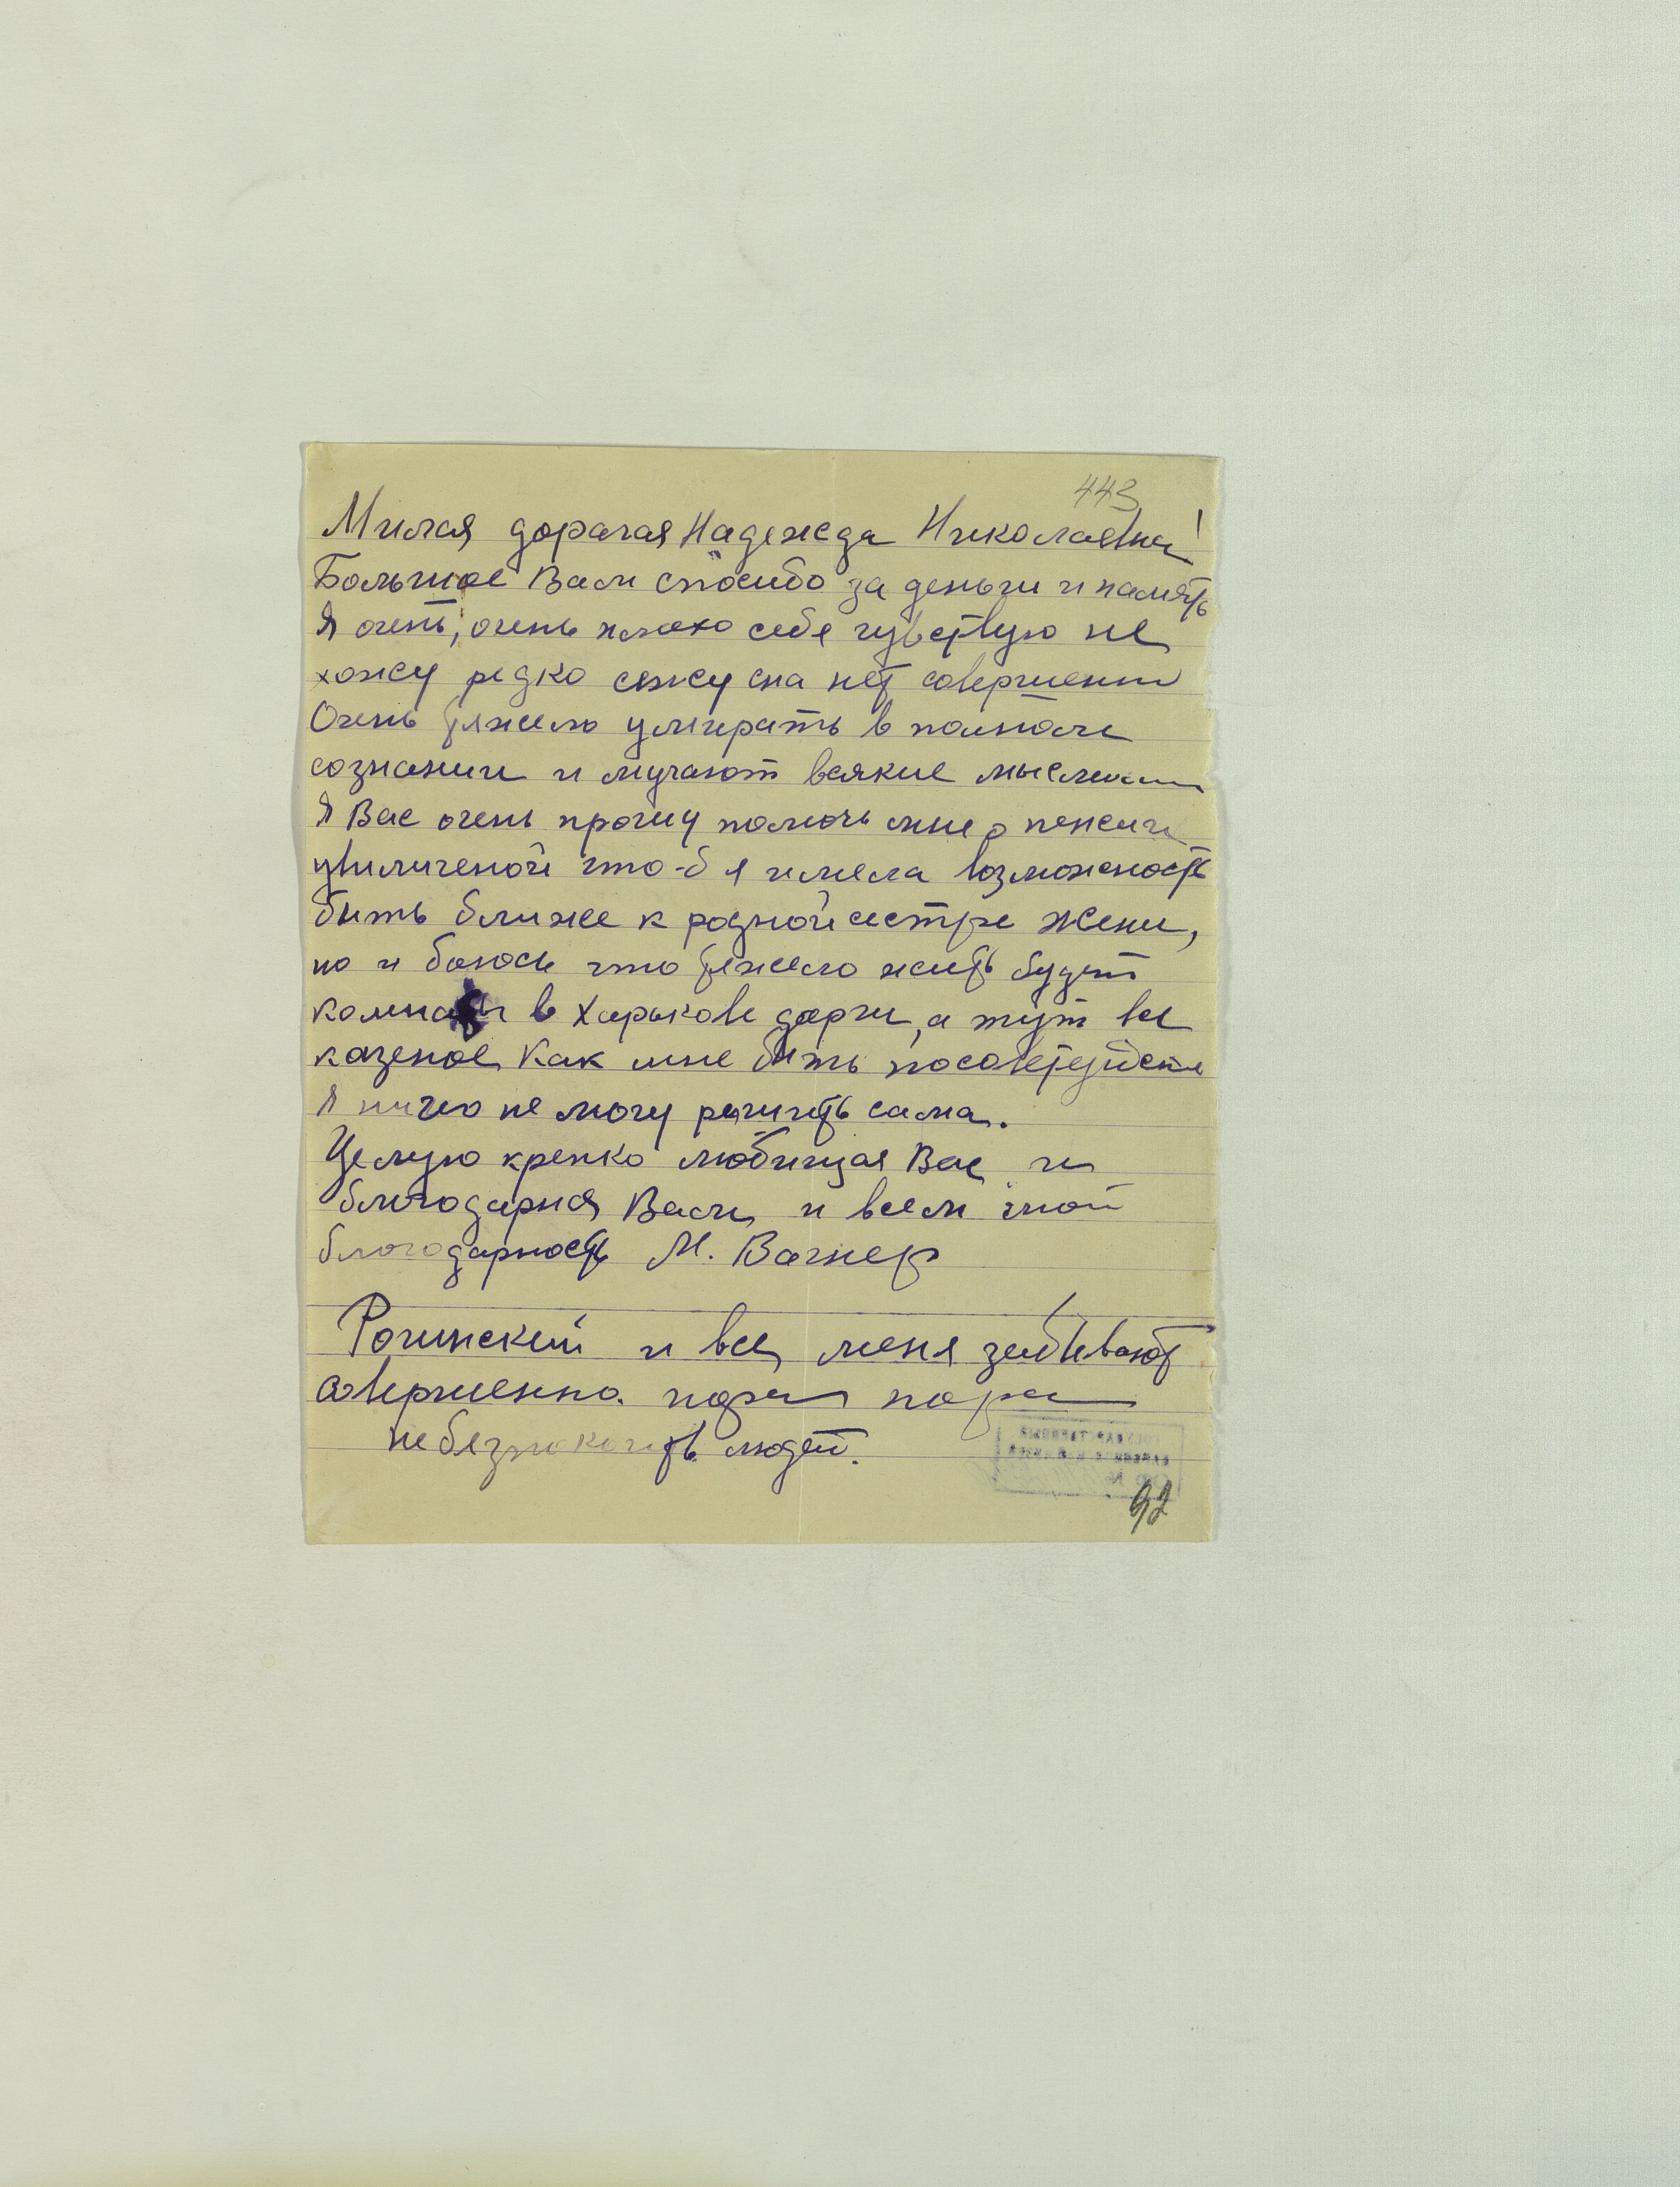 443
Милая дорагая Надежда Николаевна!
Большое Вам спосибо за деньги и память
Я очень, очень плохо себе чувствую не
хожу редко сежу сна нет совершенно
Очень тяжело умирать в полном
сознании и мучают всякие мысли
Я Вас очень прошу помочь мне о пенсии
увиличеной что-б я имела возможность
бить ближе к родной сестре Жени,
но и боюсь что тяжело жить будет
комнаты в Харькове дорги, а тут все
казеное Как мне бить посоветуйте
Я ничго не могу решить сама.
Целую крепко любищая Вас и
благодарная Вам и всем мой
благодарность М. Вагнер
Рогинский и все меня забивают
совершенно. пора пора
не безпокоить людей.
92